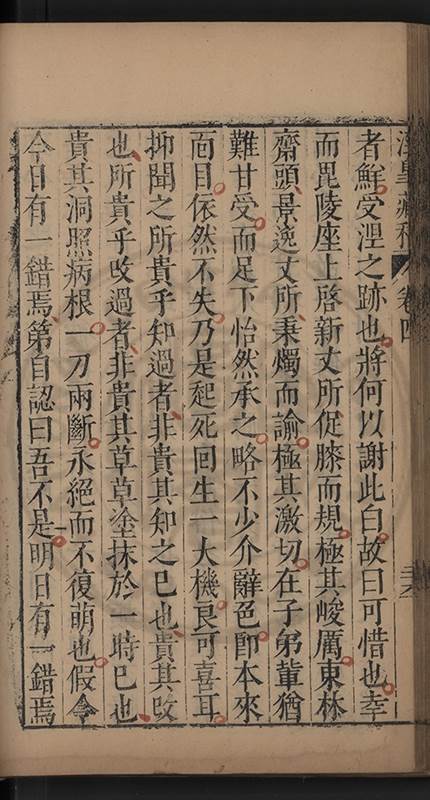 涇臯藏稿 卷四
者鮮受湼之跡也將何以謝此白故曰可惜也幸
而毘陵座上啓新丈所促膝而規極其峻厲東林
齋頭景逸丈所秉燭而諭極其激切在子弟輩猶
難甘受而足下怡然承之略不少介辭色卽本來
面目依然不失乃是起死回生一大機良可喜耳
抑聞之所貴乎知過者非貴其知之已也貴其改
也所貴乎改過者非貴其草草塗抹於一時已也
貴其洞照病根一刀兩斷永絕而不復萌也假令
今日有一錯焉第自認曰吾不是明日有一錯焉